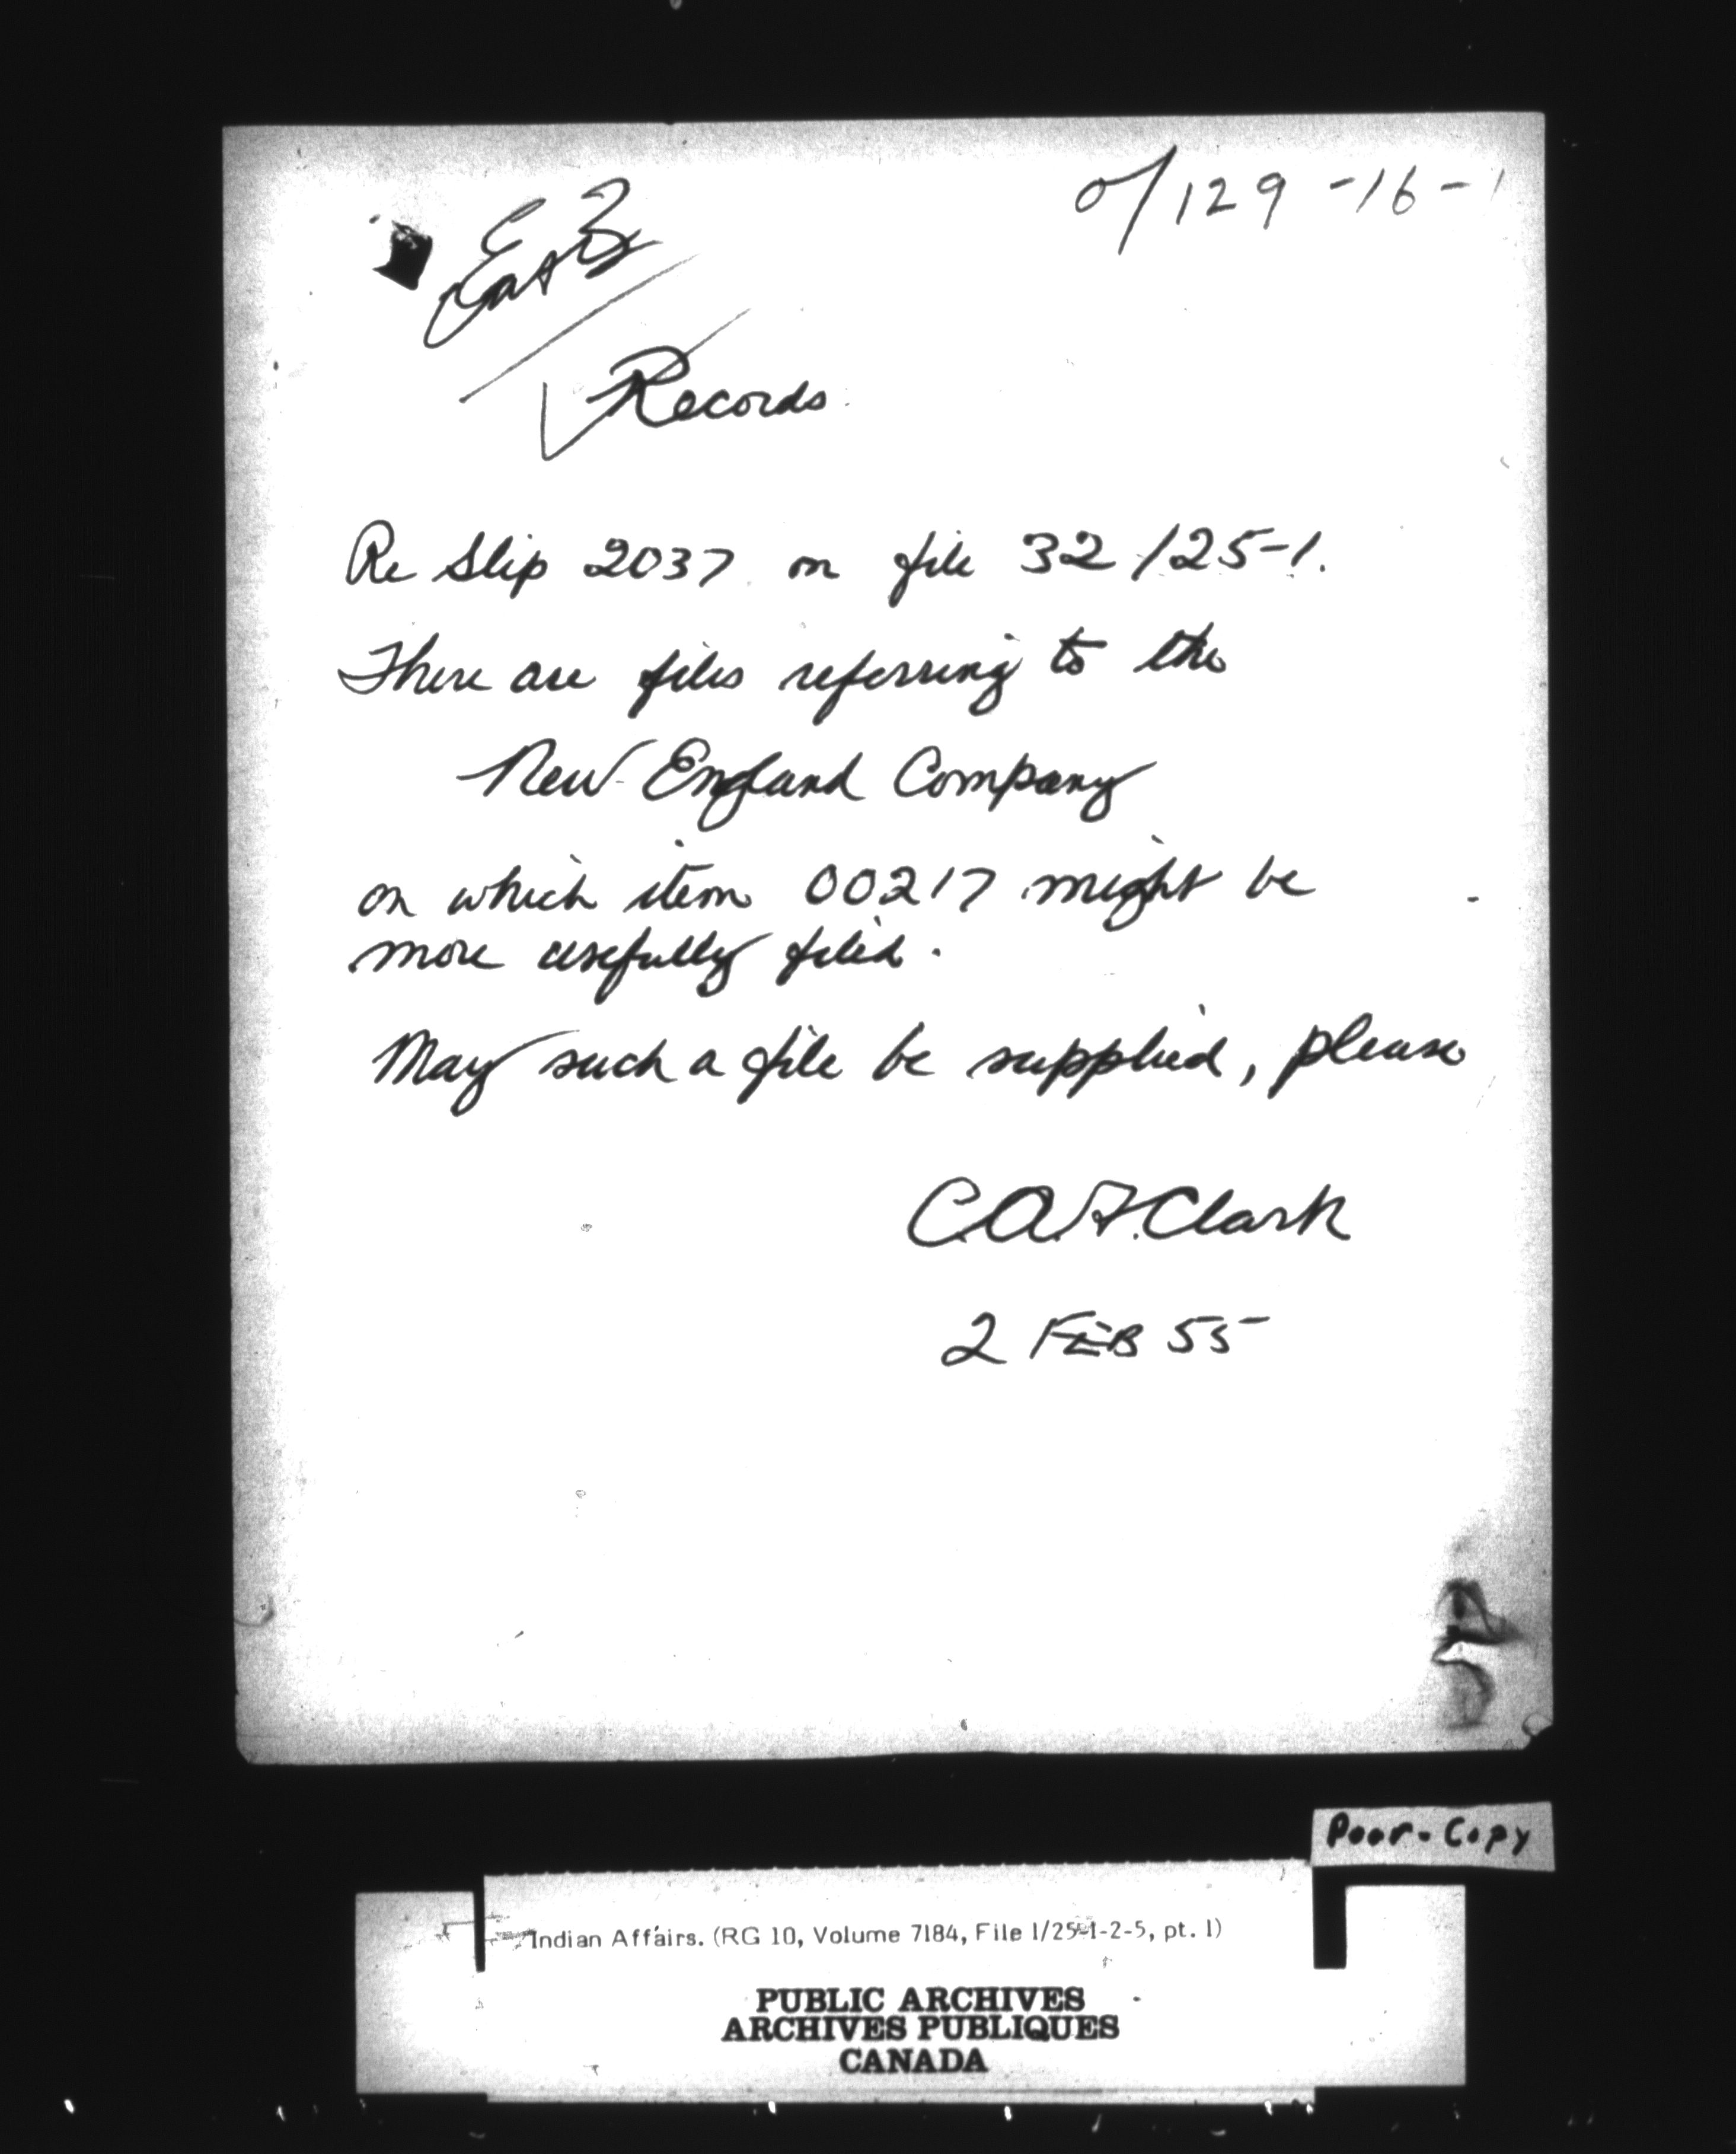 0/129-16-1
Records
Re Slip 2037 on file 32/25-1.
There are files referring to the
New England Company
on which item 00217 might be
more usefully filed.
May such a file be supplied, please
C.A.F. Clark
2 FEB 55
Poor-Copy
Indian Affairs. (RG 10, Volume 7184, File 1/25-1-2-5, pt. 1)
PUBLIC ARCHIVES
ARCHIVES PUBLIQUES
CANADA